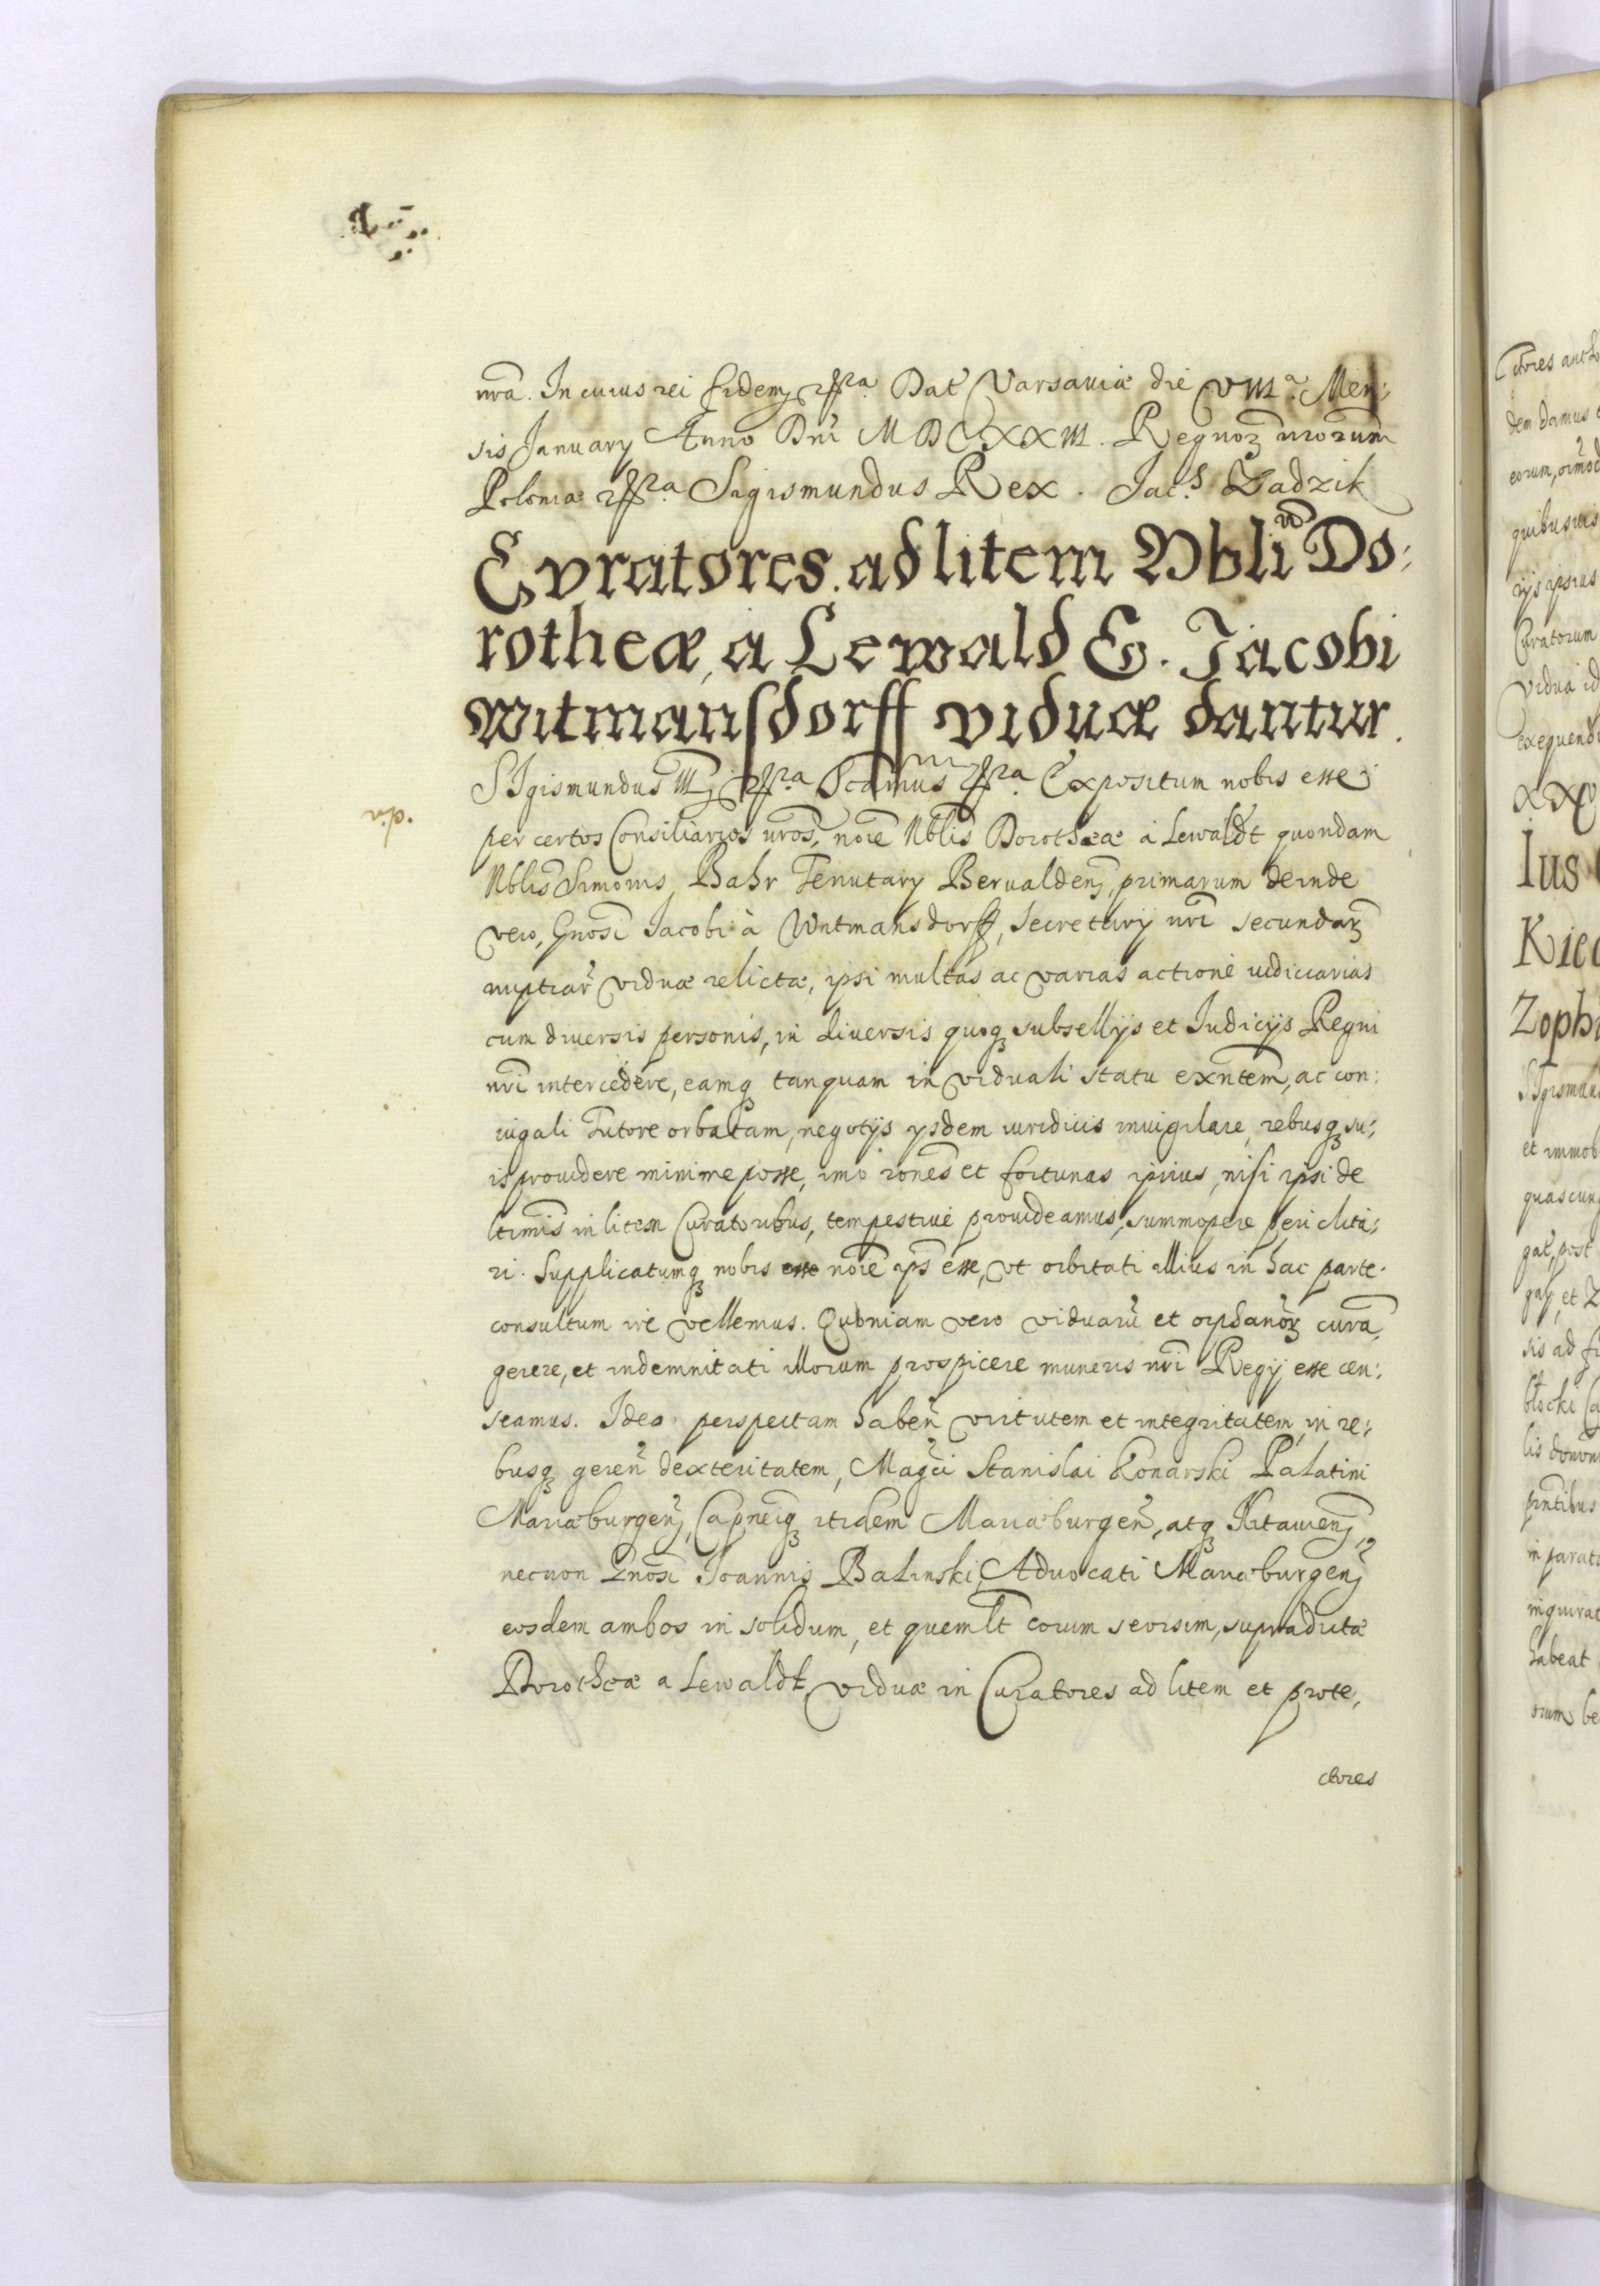 nrã. In cuius rei fidem etc. Dat Varsaviæ die VIIIª. Men:
sis January Anno Dni MDCXXIII. Regnoȝ nrorum
Poloniæ etc. Sigismundus Rex. Jac.s Zadzik
Curatores ad litem Nbli Do:
rotheæ, a Lewald G. Jacobi
Witmansdorff viduæ dantur.
SIgismundus III etc. Scamus etc. Expositum nobis esse
per certos Consiliarios nros, noie Nblis Dorotheæ à Lewaldt quondam
Nblis Simonis Bahr Tenutary Bervaldeñ, primarum deinde
vero, Gnosi Jacobi à Witmansdorff, Secretarij nri secundarȝ
nuptiar viduæ relictæ, ipsi multas ac varias actione iudiciarias
cum diversis personis, in diversis quoqȝ subsellijs et Iudicijs Regni
nri intercedere, eamqȝ tanquam in viduali statu exñtem, ac con:
iugali Tutore orbatam, negotijs ysdem iuridicis invigilare, rebusqȝ su:
is providere minime posse, imo rones et fortunas ipsius, nisi ipsi de
ltimis in litem Curatoribus, tempestive provideamus, summopere periclita:
ri. Supplicatumqȝ nobis esse noie ips esse, ut orbitati illius in hac parte
consultum ire vellemus. Quoniam vero viduaru et orphanoȝ cura,
gerere, et indemnitati illorum prospicere muneris nri Regij esse cen:
seamus. Ideo perspectam habeñ virtutem et integritatem, in re:
busqȝ gereñ dexteritatem, Magci Stanislai Konarski Palatini
Mariæburgeñ, Capneiqȝ itidem Mariæburgeñ, atqȝ Kitawieñ,
necnon Gnosi Joannis Balinski, Advocati Mariæburgeñ
eosdem ambos in solidum, et quemlt eorum seorsim, supradictæ
Dorotheæ a Lewaldt viduæ in Curatores ad litem et prote,
ctores
Ctores
dem damus
eorum,
quibusvis
ijs ipsius
Curatorum
vidua id
exequendi
Ius
Kie
Zoph
SIgismun
et immob
quascunq
gat, post
et Z
sis ad
blocki Ca
lis
pntibus
in parat
inquirat
habeat